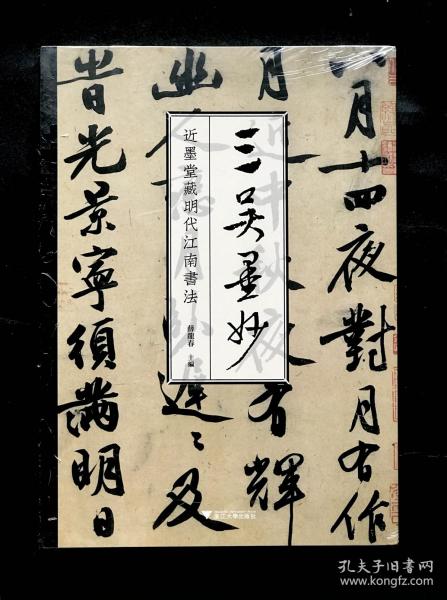 三吴墨妙
近墨堂藏明代江南書法
薛龍春 主編
浙江大學出版社
八月十四夜對月有作
月
有輝
幽
遲〻及
昔光景寧須滿明日
孔夫子旧书网
www.kongfz.com